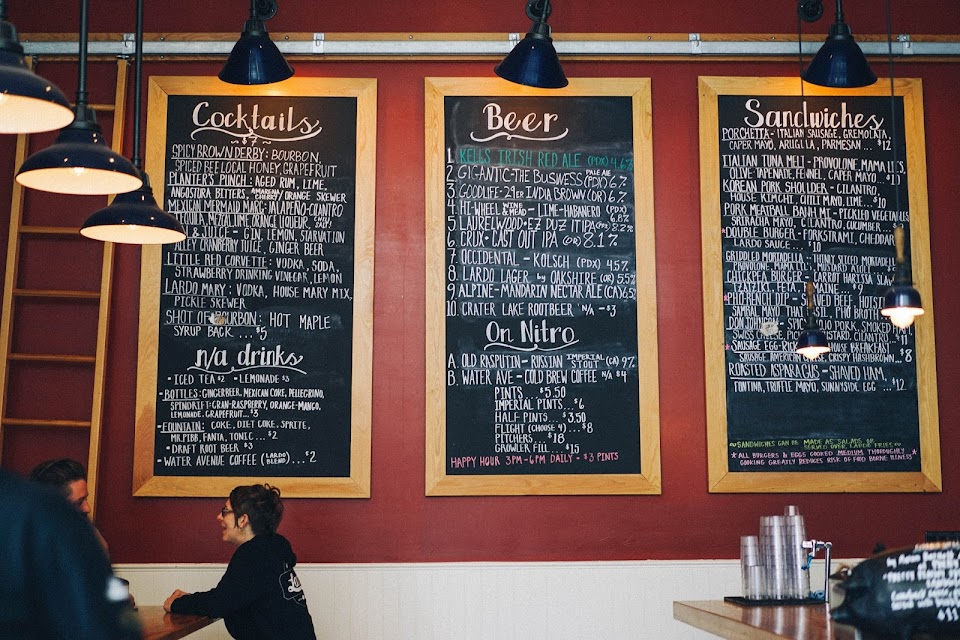 Cocktails
$7
SPICY BROWN DERBY: BOURBON,
SPICED BEE LOCAL HONEY, GRAPEFRUIT
PLANTER'S PUNCH: AGED RUM, LIME,
ANGOSTURA BITTERS, AMARENA CHERRY/ORANGE SKEWER
MEXICAN MERMAID MARG: JALAPEÑO-CILANTRO
TEQUILA, MEZCAL, LIME, ORANGE LIQUEUR,
& JUICE: GIN, LEMON, STARVATION
ALLEY CRANBERRY JUICE, GINGER BEER
LITTLE RED CORVETTE: VODKA, SODA,
STRAWBERRY DRINKING VINEGAR, LEMON
LARDO MARY: VODKA, HOUSE MARY MIX,
PICKLE SKEWER
SHOT OF BOURBON: HOT MAPLE
SYRUP BACK ... $5
n/a drinks
• ICED TEA $2 • LEMONADE $3
• BOTTLES: GINGERBEER, MEXICAN COKE, PELLEGRINO,
SPINDRIFT: CRAN-RASPBERRY, ORANGE-MANGO,
LEMONADE, GRAPEFRUIT... $3
• FOUNTAIN: COKE, DIET COKE, SPRITE,
MR. PIBB, FANTA, TONIC ... $2
• DRAFT ROOT BEER $3
• WATER AVENUE COFFEE (LARDO BLEND)... $2
Beer
1. KELLS IRISH RED ALE (PDX) 4.6%
2. GIGANTIC-THE BUSINESS PALE ALE (PDX) 6%
3. GOODLIFE-29ER INDIA BROWN (OR) 6%
4. HI-WHEEL WINE & MEAD - LIME-HABANERO (PDX) 6.8%
5. LAURELWOOD-EZ DUZ IT IPA (PDX) 8.2%
6. CRUX-CAST OUT IPA (OR) 8.1%
7. OCCIDENTAL - KÖLSCH (PDX) 4.5%
8. LARDO LAGER by OAKSHIRE (OR) 5.5%
9. ALPINE-MANDARIN NECTAR ALE (CA) 6.5%
10. CRATER LAKE ROOTBEER N/A - $3
On Nitro
A. OLD RASPUTIN-RUSSIAN IMPERIAL STOUT (CA) 9%
B. WATER AVE - COLD BREW COFFEE N/A $4
PINTS ... $5.50
IMPERIAL PINTS... $6
HALF PINTS ... $3.50
FLIGHT (CHOOSE 4) ... $8
PITCHERS... $18
GROWLER FILL ... $15
HAPPY HOUR 3PM-6PM DAILY - $3 PINTS
Sandwiches
PORCHETTA - ITALIAN SAUSAGE, GREMOLATA,
CAPER MAYO, ARUGULA, PARMESAN ... $12
ITALIAN TUNA MELT - PROVOLONE, MAMA LIL'S,
OLIVE TAPENADE, FENNEL, CAPER MAYO $10
KOREAN PORK SHOULDER - CILANTRO,
HOUSE KIMCHI, CHILI MAYO, LIME... $10
PORK MEATBALL BANH MI - PICKLED VEGETABLES,
SRIRACHA MAYO, CILANTRO, CUCUMBER ...
* DOUBLE BURGER - PORKSTRAMI, CHEDDAR,
LARDO SAUCE ... $10
GRIDDLED MORTADELLA - THINLY SLICED MORTADELLA
PROVOLONE, MAMA LIL'S, MUSTARD AIOLI
CHICKPEA BURGER - CARROT HARISSA SLAW,
TZATZIKI, FETA, ROMAINE ... $9
* PHO-RENCH DIP - SHAVED BEEF, HOISIN,
SAMBAL MAYO, THAI BASIL, PHO BROTH
DON JOHNSON - MOJO PORK, SMOKED HAM,
SWISS CHEESE, PICKLES, MUSTARD, CILANTRO... $11
* SAUSAGE EGG- HOUSE BREAKFAST
SAUSAGE, AMERICAN CHEESE, CRISPY HASHBROWN... $8
ROASTED ASPARAGUS - SHAVED HAM,
FONTINA, TRUFFLE MAYO, SUNNYSIDE EGG ... $12
~SANDWICHES CAN BE MADE AS SALADS OR
SERVED OVER LARDO FRIES~
* ALL BURGERS & EGGS COOKED MEDIUM THOROUGHLY *
COOKING GREATLY REDUCES RISK OF FOOD BORNE ILLNESS